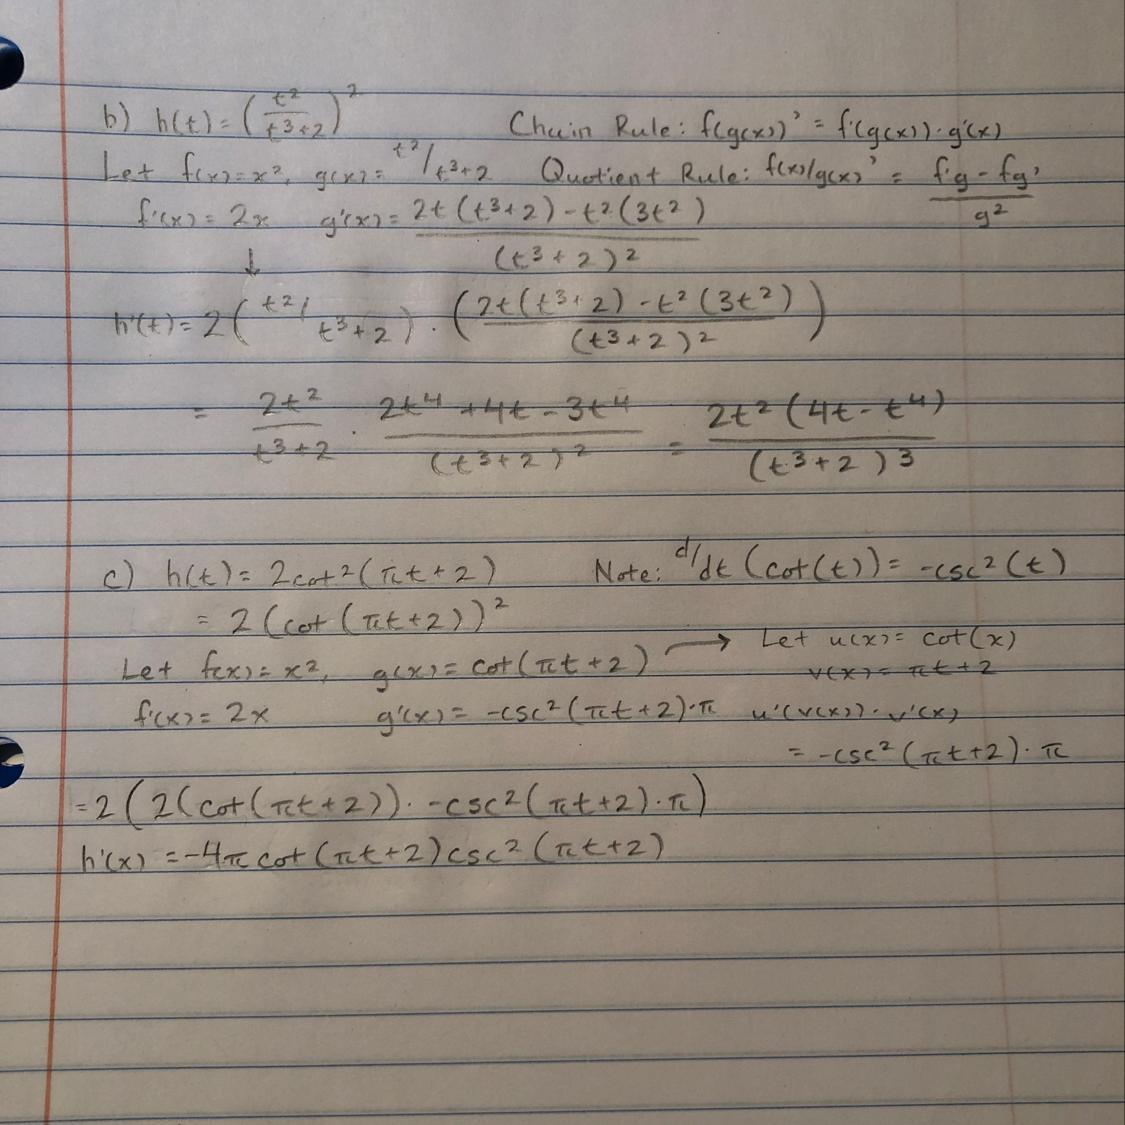 b) h(t) = (t²/(t³+2))² Chain Rule: f(g(x))' = f'(g(x))·g'(x)
Let f(x) = x², g(x) = t²/t³+2 Quotient Rule: f(x)/g(x)' = (f'g - fg')/g²
f'(x) = 2x g'(x) = (2t(t³+2) - t²(3t²))/(t³+2)²
↓
h'(t) = 2(t²/t³+2) · ((2t(t³+2) - t²(3t²))/(t³+2)²)
= 2t²/(t³+2) · (2t⁴ + 4t - 3t⁴)/(t³+2)² = 2t²(4t - t⁴)/(t³+2)³
c) h(t) = 2cot²(πt+2) Note: d/dt (cot(t)) = -csc²(t)
= 2(cot(πt+2))²
Let f(x) = x², g(x) = cot(πt+2) → Let u(x) = cot(x)
v(x) = πt+2
f'(x) = 2x g'(x) = -csc²(πt+2)·π u'(v(x))·v'(x)
= -csc²(πt+2)·π
= 2(2(cot(πt+2))· -csc²(πt+2)·π)
h'(x) = -4π cot(πt+2)csc²(πt+2)